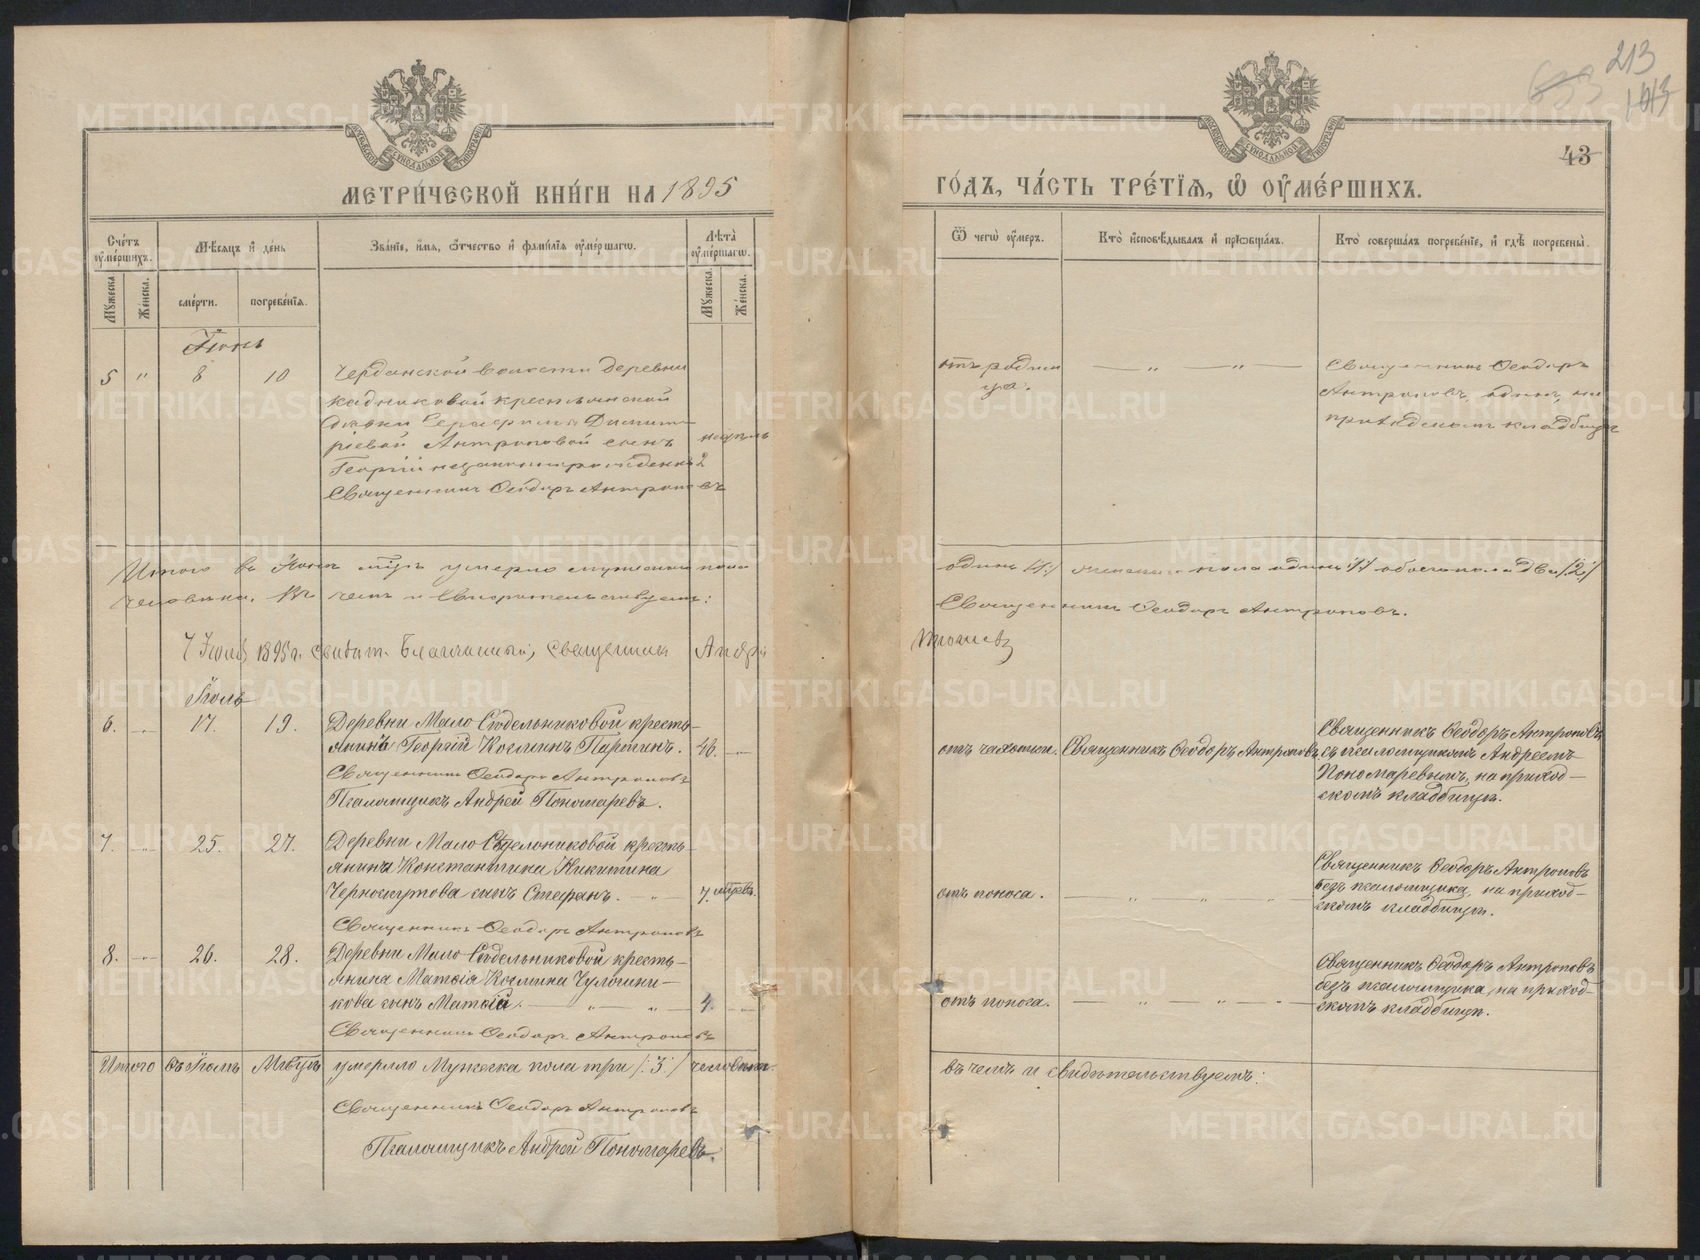 213
1013
43
МЕТРИ́ЧЕСКОЙ КНИ́ГИ НА 1895
ГО́ДЪ, ЧА́СТЬ ТРЕ́ТІѦ, Ѽ ОУ҆МЕ́РШИХЪ.
Сче́тъ оу҆ме́ршихъ.
Мѣ́сяцъ и҆ де́нь
Зва́ніе, и҆́мя, ѻ҆́тчество и҆ фами́лія оу҆ме́ршагѡ.
Лѣта̀ оу҆ме́ршагѡ.
Ѿ чегѡ̀ оу҆́меръ.
Кто̀ и҆сповѣ́дывалъ и҆ прїѡбща́лъ.
Кто̀ соверша́лъ погребе́ніе, и҆ гдѣ̀ погребены̀.
Му́жеска.
Же́нска.
сме́рти.
погребе́нія.
Му́жеска.
Же́нска.
Іюнь
5 " 8 10
Черданской волости деревни
Кадниковой крестьянской
дѣвки Серафимы Димит-
ріевой Антроповой сынъ
Георгій незаконнорожденный
Священникъ Ѳеодоръ Антроповъ
недѣль
2
отъ родим
ца.
— " — " —
Священникъ Ѳеодоръ
Антроповъ, одинъ, на
приходскомъ кладбищѣ
Итого въ Іюнѣ мцѣ умерло мужескаго пола
одинъ /1/ женскаго пола одинъ /1/ обоего пола два /2/
человѣка. Въ чемъ и свидѣтельствуемъ:
Священникъ Ѳеодоръ Антроповъ.
7 Іюля 1895 г. свидѣт. Благочинный, Священникъ Андрей
Іюль
6. — 17. 19.
Деревни Мало-Сѣдельниковой кресть-
янинъ Георгій Космин Паршинъ.
Священникъ Ѳеодоръ Антроповъ
Псаломщикъ Андрей Пономаревъ.
46. —
отъ чахотки.
Священникъ Ѳеодоръ Антроповъ.
Священникъ Ѳеодоръ Антроповъ
съ псаломщикомъ Андреемъ
Пономаревымъ, на приход-
скомъ кладбищѣ.
7. — 25. 27.
Деревни Мало-Сѣдельниковой кресть-
янина Константина Никитина
Черноскутова сынъ Стефанъ. — " —
Священникъ Ѳеодоръ Антроповъ
7. мѣсев.
отъ поноса.
— " — " — " —
Священникъ Ѳеодоръ Антроповъ
безъ псаломщика, на приход-
скомъ кладбищѣ.
8. — 26. 28.
Деревни Мало-Сѣдельниковой кресть-
янина Матѳія Космина Чулошни-
кова сынъ Матѳій. — " — " —
Священникъ Ѳеодоръ Антроповъ
4. —
отъ поноса.
— " — " — " —
Священникъ Ѳеодоръ Антроповъ
безъ псаломщика, на приход-
скомъ кладбищѣ.
Итого въ Іюлѣ Мѣсяцѣ умерло Мужеска пола три /:3:/ человѣка.
въ чемъ и свидѣтельствуемъ:
Священникъ Ѳеодоръ Антроповъ
Псаломщикъ Андрей Пономаревъ.
METRIKI.GASO-URAL.RU